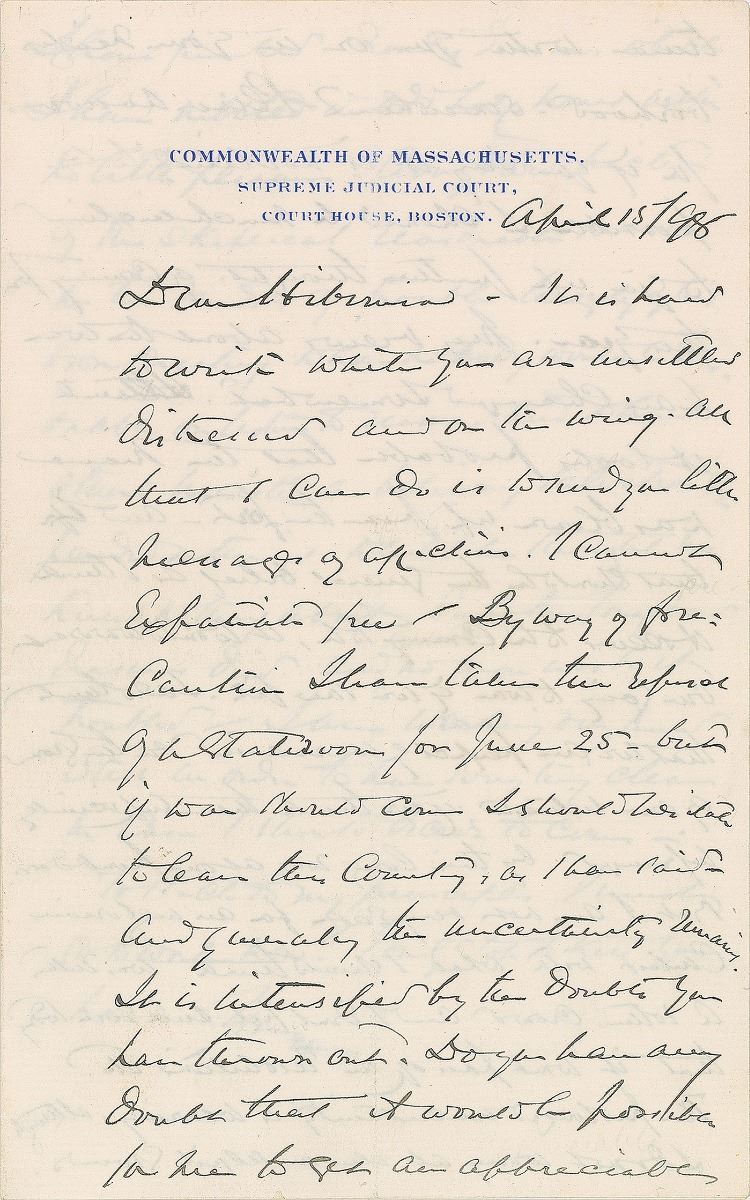 COMMONWEALTH OF MASSACHUSETTS.
SUPREME JUDICIAL COURT,
COURT HOUSE, BOSTON. April 15/98
Dear Hibernia – It is hard
to write while you are unsettled
and on the wing. All
that I can do is to send you little
message of affection. I cannot
Expatiate free – By way of pre-
caution I have taken the refusal
of a Stateroom for June 25 – but
if war should come I should hesitate
to leave this Country, as I have said –
and generally the uncertainty remains.
It is intensified by the Doubts you
have thrown out. Do you have any
Doubt that it would be possible
for me to get an appreciable